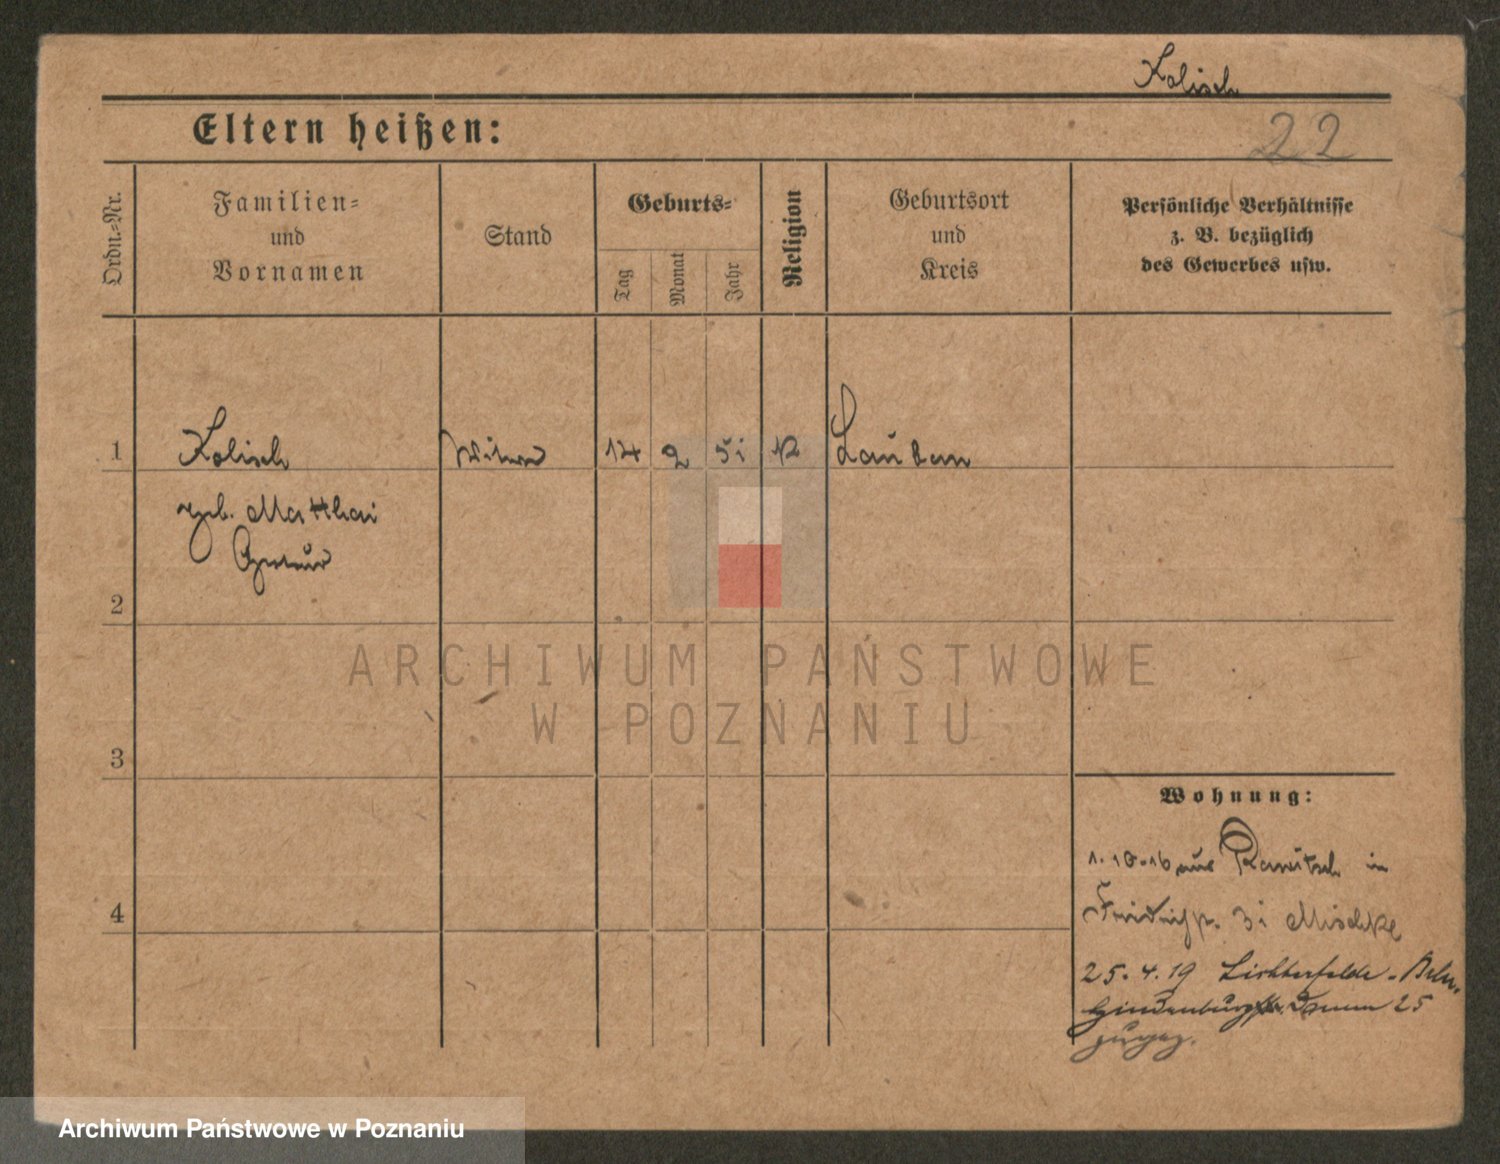 Kolisch
22
Eltern heißen:
Ordn.-Nr.
Familien-
und
Vornamen
Stand
Geburts-
Tag
Monat
Jahr
Religion
Geburtsort
und
Kreis
Persönliche Verhältnisse
z. B. bezüglich
des Gewerbes usw.
1 Kolisch Witwe 14 2 51 K Lauban
geb. Matthai
2
3
4
Wohnung:
1.10.16 aus in
31 Mischke
25.4.19 Lichterfelde-Berln.
Hindenburg Damm 25
zugez.
ARCHIWUM PAŃSTWOWE
W POZNANIU
Archiwum Państwowe w Poznaniu